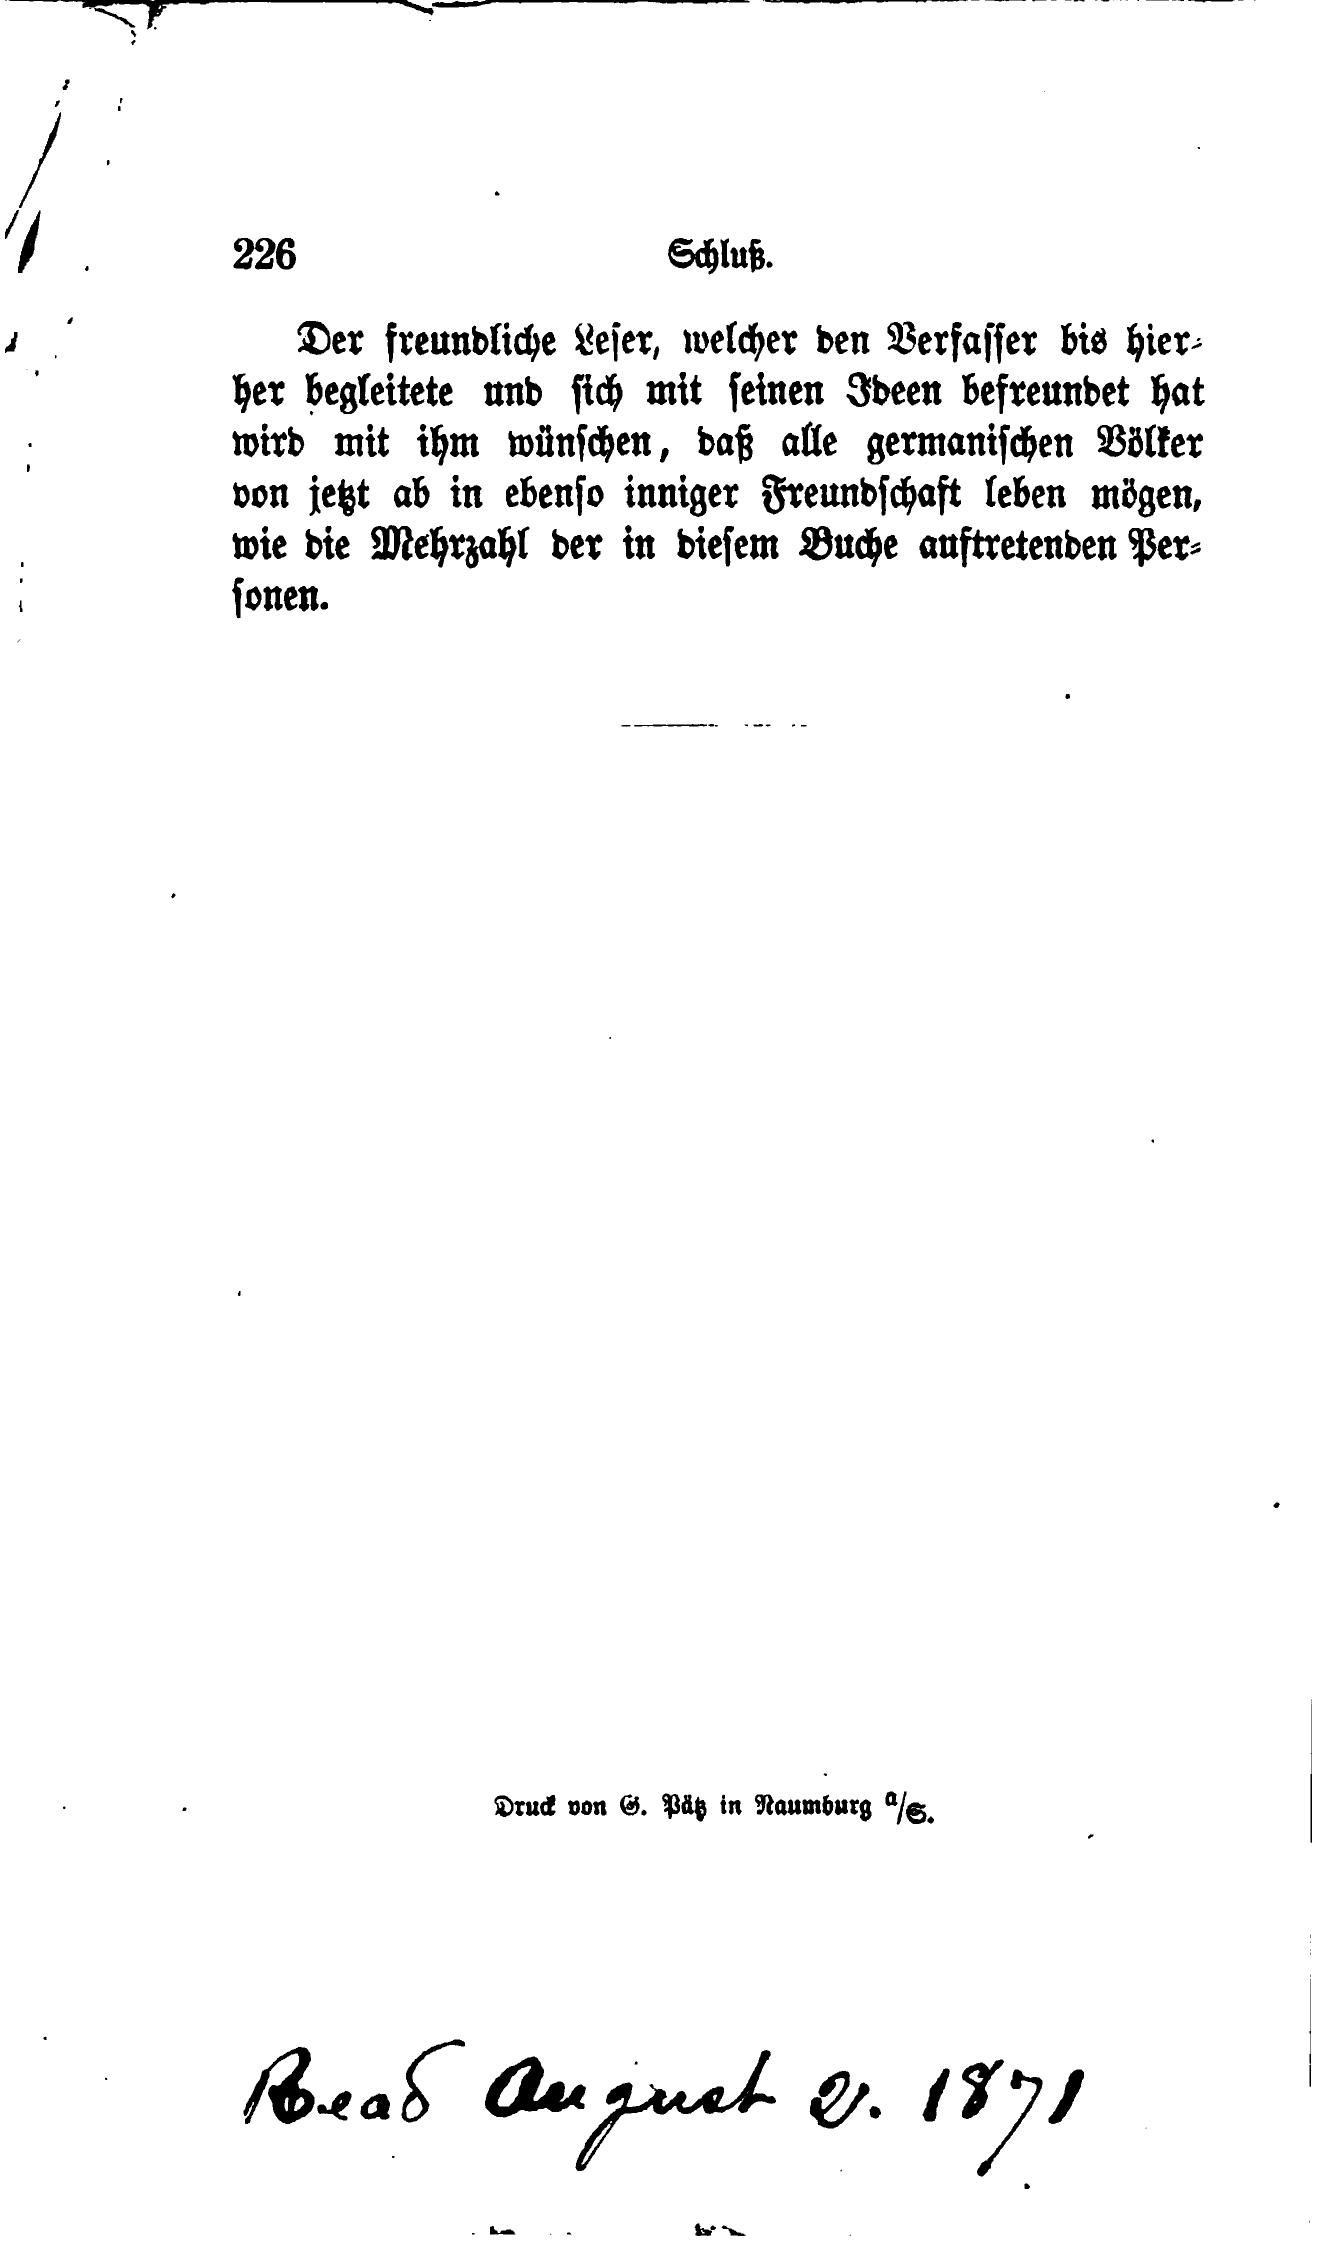 226 Schluß.
Der freundliche Leser, welcher den Verfasser bis hier-
her begleitete und sich mit seinen Ideen befreundet hat
wird mit ihm wünschen, daß alle germanischen Völker
von jetzt ab in ebenso inniger Freundschaft leben mögen,
wie die Mehrzahl der in diesem Buche auftretenden Per-
sonen.
Druck von G. Pätz in Naumburg a/S.
Read August 2. 1871